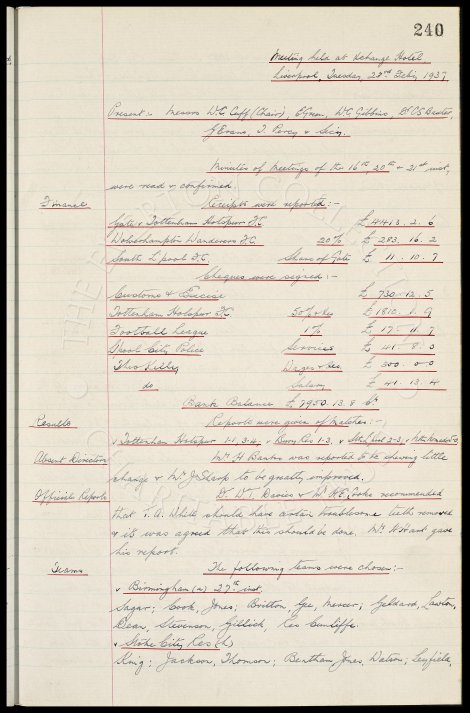 240
Meeting held at Xchange Hotel,
Liverpool, Tuesday, 23rd Feby 1937
Present:- Messrs W.C. Cuff (Chair), E. Green, W.C. Gibbins, Dr C.S. Baxter,
G. Evans, T. Percy & Secy.
Minutes of Meetings of the 16th 20th & 21st inst,
were read & confirmed.
Finance Receipts were reported:-
Gate v Tottenham Hotspur F.C. £4413. 2. 6
Wolverhampton Wanderers F.C. 20% £ 283. 16. 2
South L'pool F.C. Share of Gate £ 11. 10. 7
Cheques were signed:-
Customs & Excise £ 730. 12. 5
Tottenham Hotspur F.C. £ 1810. 1. 9
Football League 1% £ 17. 11. 7
L'pool City Police Services £ 41. 8. 0
Theo Kelly Wages & £ 300. 0. 0
do Salary £ 41. 13. 4
Bank Balance £ 7950. 13. 8
Results Reports were given of Matches:-
v Tottenham Hotspur 1-1, 3-4, v Bury Res 1-3, v
Absent Directors Mr. H. Banks was reported to be showing little
change & Mr. J. Sharp to be greatly improved.
Officials Reports Dr. W.T. Davies & W.H.E. Cooke recommended
that T.A. White should have certain troublesome teeth removed
& it was agreed that this should be done. Mr. H. Hard gave
his report.
Teams The following teams were chosen:-
v Birmingham (a) 27th inst,
Sagar; Cook, Jones; Britton, Gee, Mercer; Geldard, Lawton,
Dean, Stevenson, Gillick. Res Cunliffe.
v Stoke City Res (h)
King; Jackson, Thomson; Bentham, Jones, Watson; Leyfield,